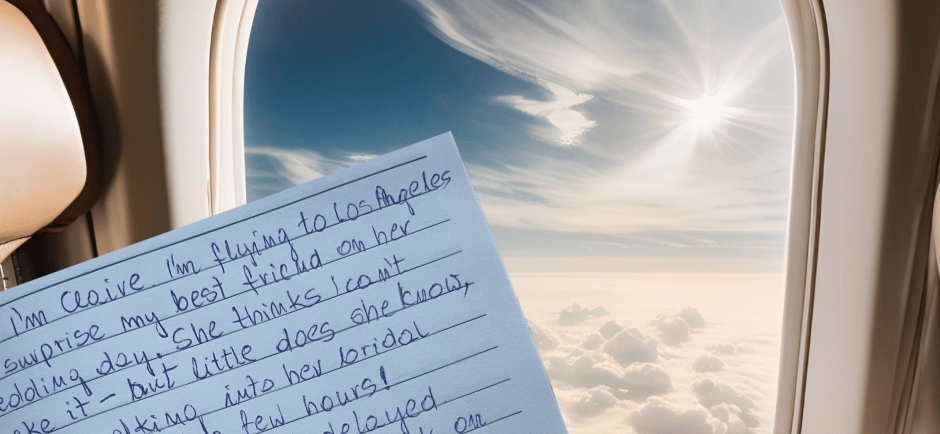 I'm Claire. I'm flying to Los Angeles
surprise my best friend on her
edding day. She thinks I can't
ke it - but little does she know,
lking into her bridal
few hours!
delayed
on